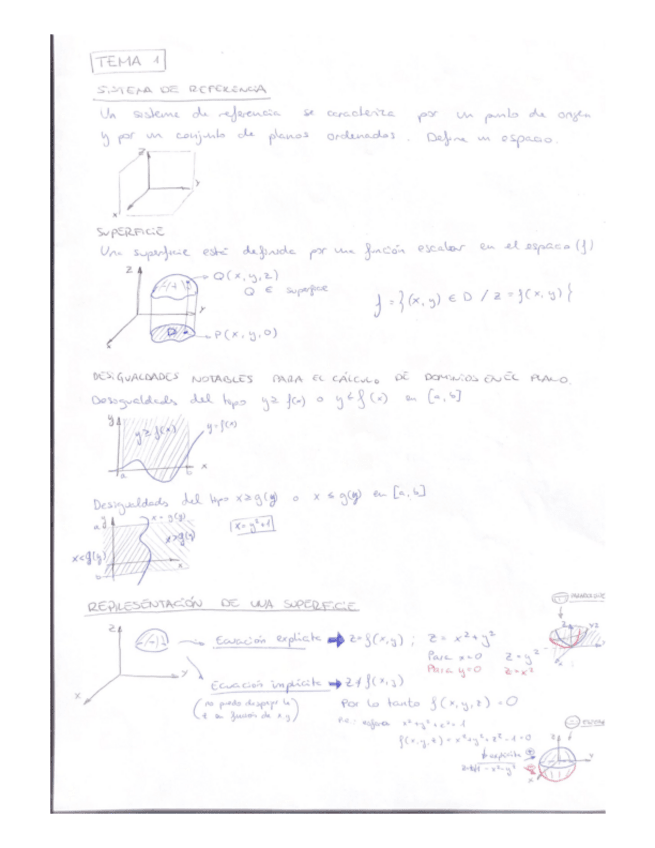 TEMA 1
SISTEMA DE REFERENCIA
Un sistema de referencia se caracteriza por un punto de origen
y por un conjunto de planos ordenados. Define un espacio.
Z
Y
X
SUPERFICIE
Una superficie está definida por una función escalar en el espacio (f)
Z
Q(x,y,z)
Q ∈ superficie
f = {(x,y) ∈ D / z = f(x,y)}
Y
D
P(x,y,0)
X
DESIGUALDADES NOTABLES PARA EL CÁLCULO DE DOMINIOS EN EL PLANO.
Desigualdades del tipo y ≥ f(x) o y ≤ f(x) en [a,b]
y
y ≥ f(x)
y = f(x)
a
b
x
Desigualdades del tipo x ≥ g(y) o x ≤ g(y) en [a,b]
y
a
x = g(y)
x = y²+1
x > g(y)
x < g(y)
x
b
REPRESENTACIÓN DE UNA SUPERFICIE
Z
Ecuación explícita → z = f(x,y) ; z = x² + y²
Para x=0 z = y²
Para y=0 z = x²
Y
X
Ecuación implícita → z ≠ f(x,y)
(no puedo despejar la
z en función de x y)
Por lo tanto f(x,y,z) = 0
esfera x²+y²+z²=1
f(x,y,z) = x²+y²+z²-1=0
explícita